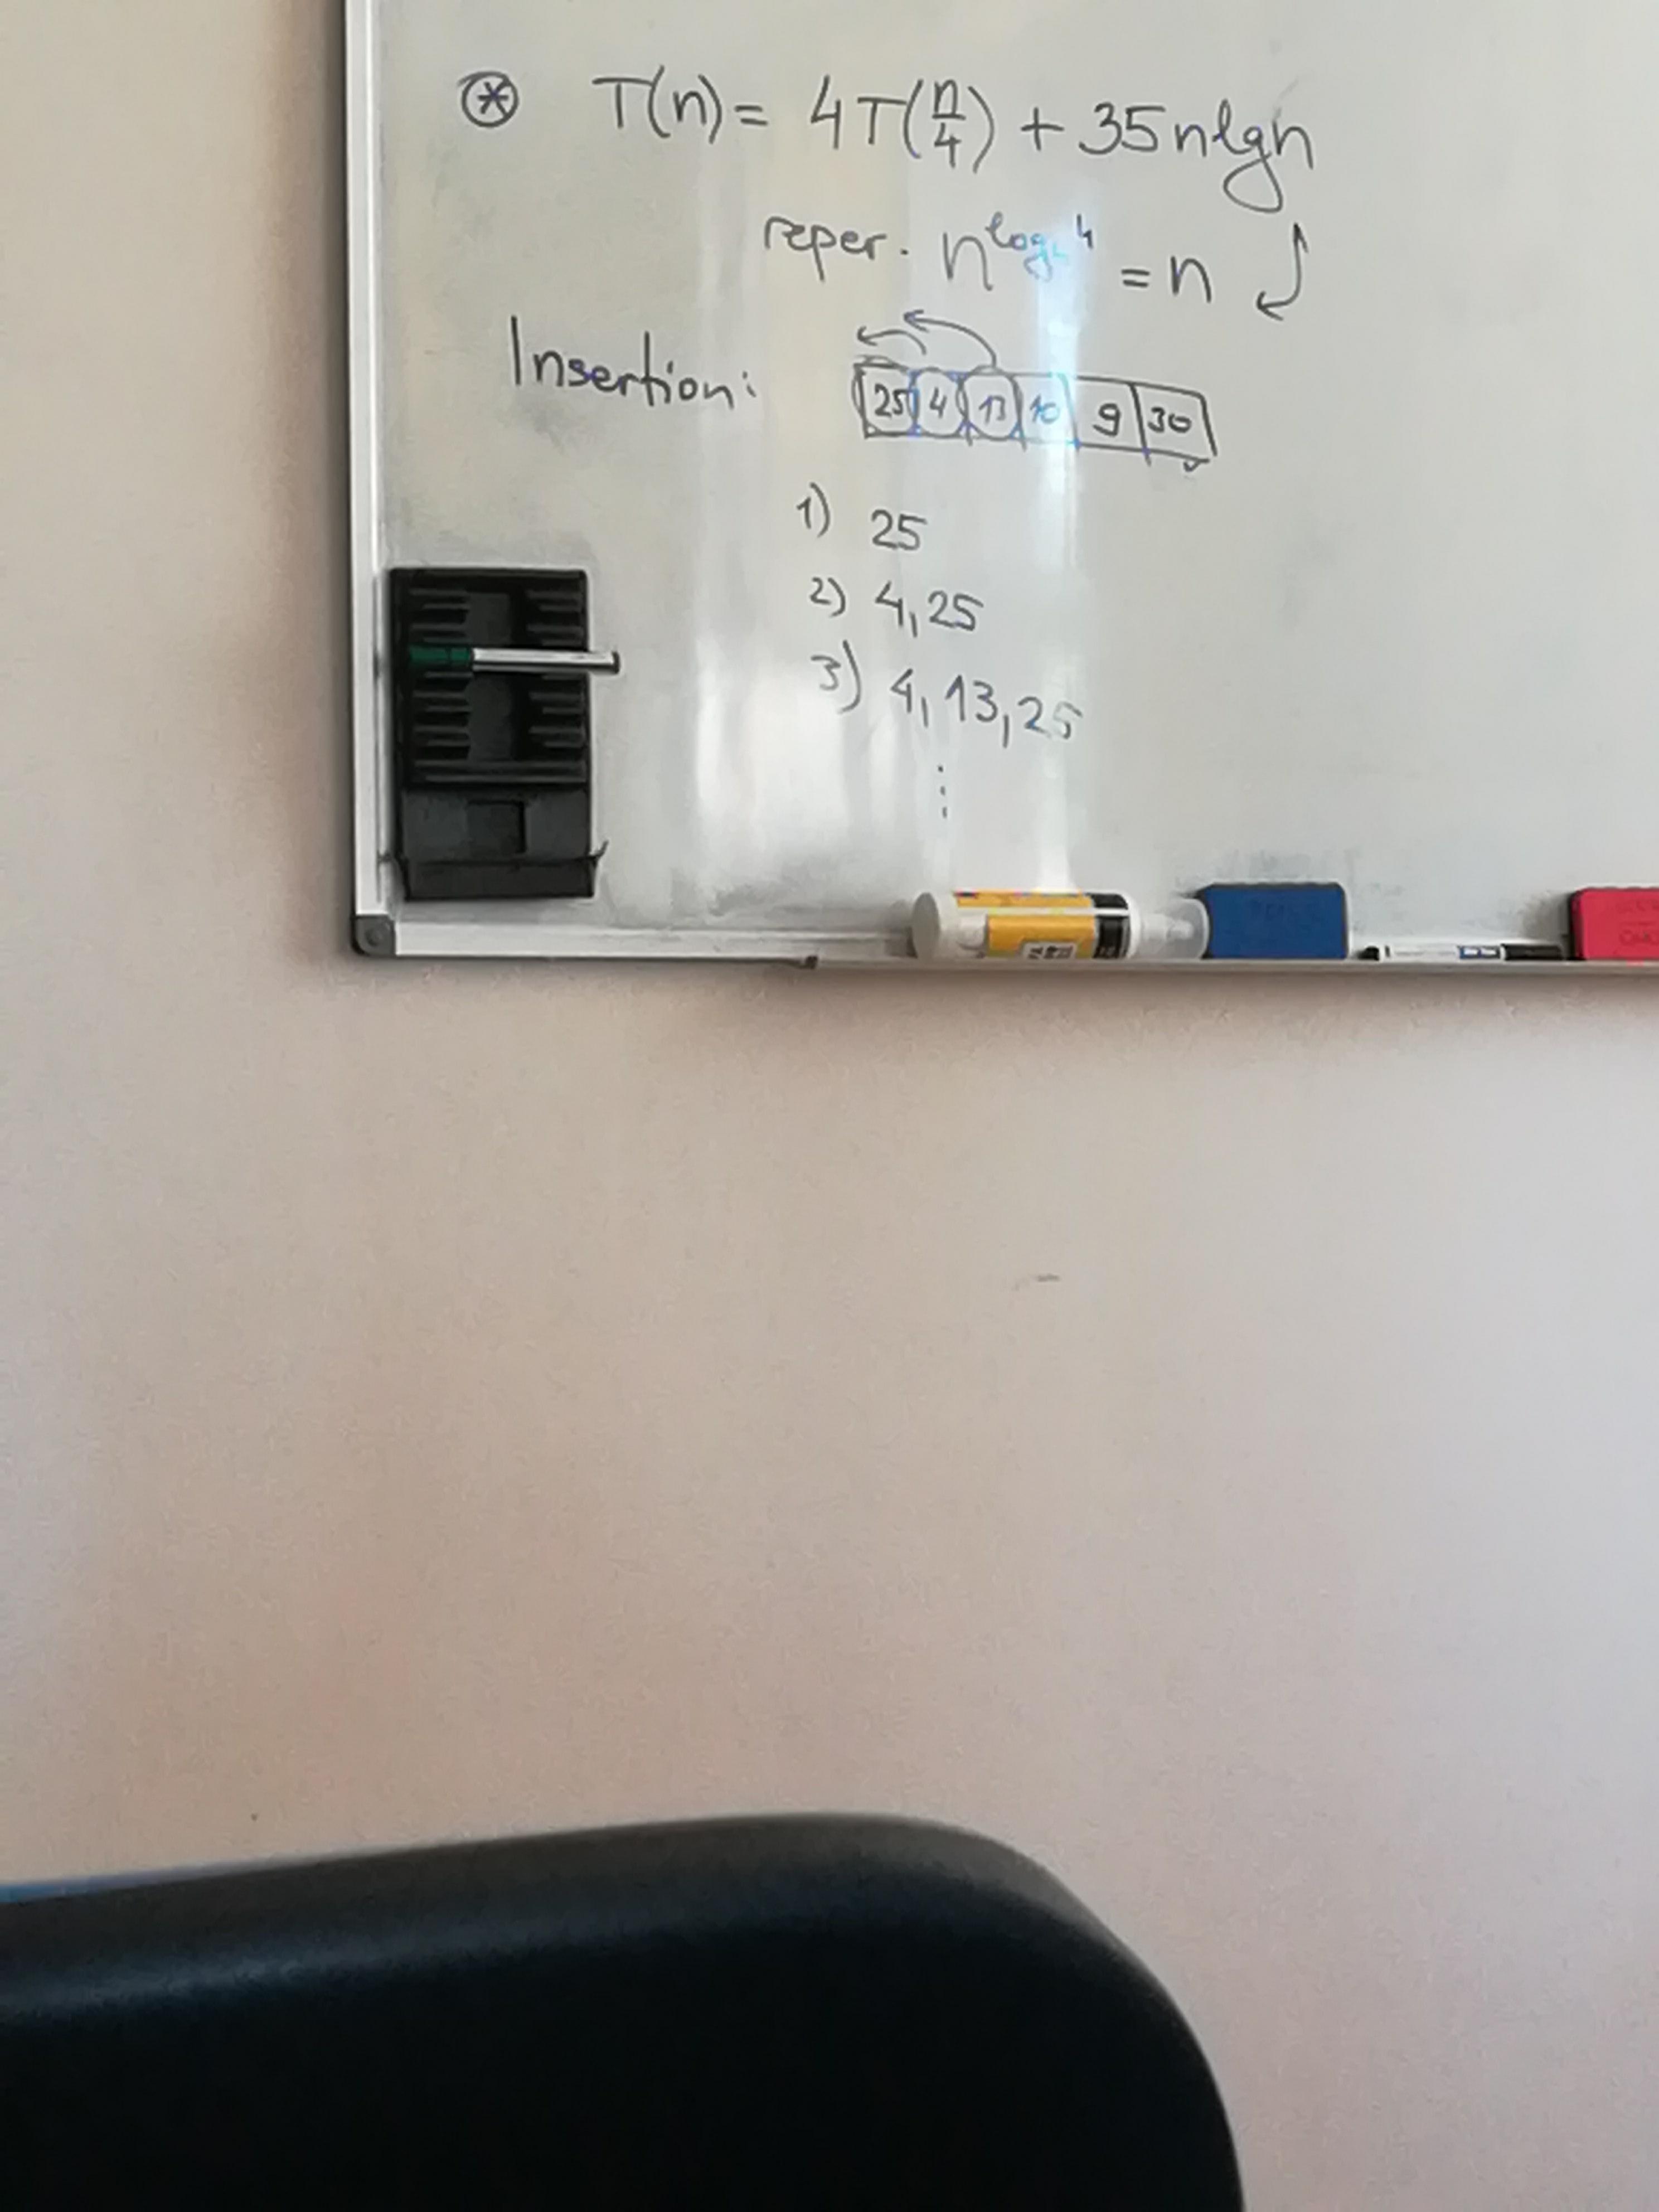 ⊛ T(n) = 4T(n/4) + 35 n lg n
reper. n^log₄4 = n
Insertion: 25 4 13 10 9 30
1) 25
2) 4, 25
3) 4, 13, 25
⋮